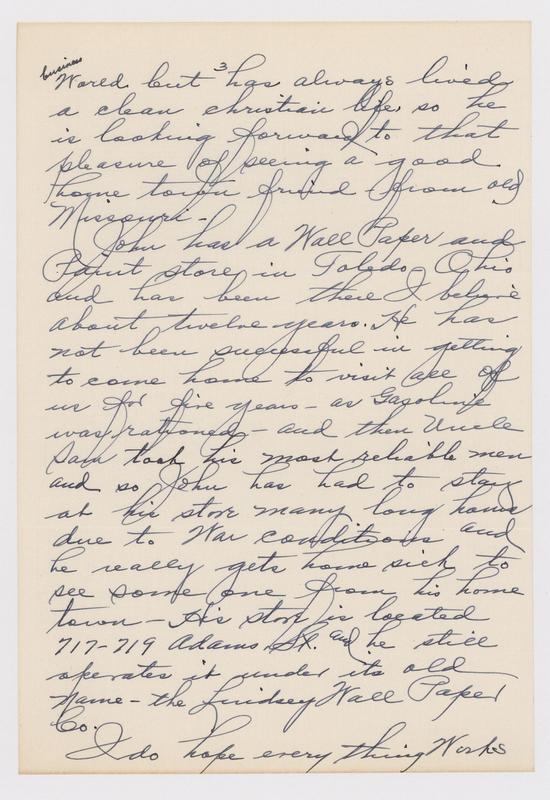 business
3
World but has always lived
a clean christian life, so he
is looking forward to that
pleasure of seeing a good
home town friend from old
Missouri-
John has a Wall Paper and
Paint store in Toledo, Ohio
and has been there I believe
about twelve years. He has
not been successful in getting
to come home to visit all of
us for five years - as Gasoline
was rationed - and then Uncle
Sam took his most reliable men
and so John has had to stay
at his store many long hours
due to War conditions and
he really gets home sick to
see some one from his home
town - His store is located
717-719 Adams St. and he still
operates it under its old
name - the Lindsey Wall Paper
Co.
I do hope every thing Works